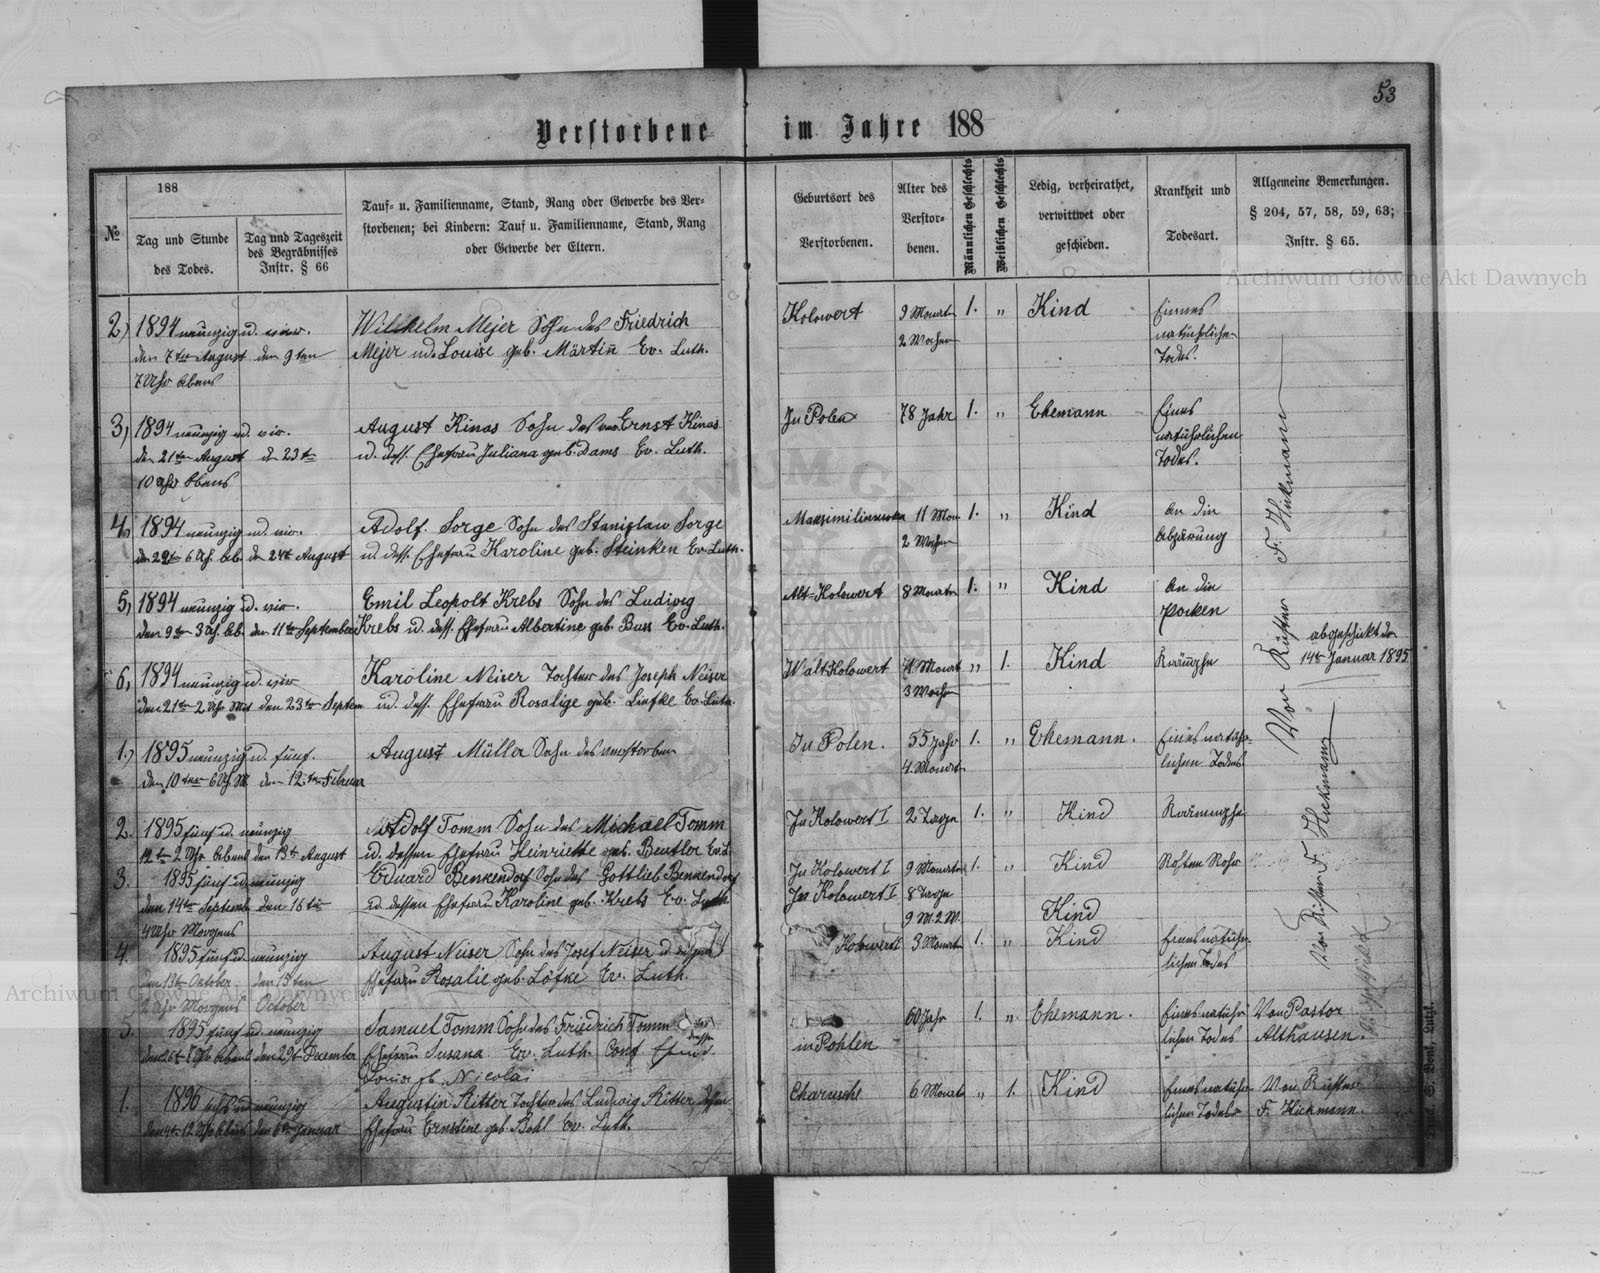 53
Verstorbene im Jahre 188
№
188
Tag und Stunde
des Todes.
Tag und Tageszeit
des Begräbnisses
Instr. § 66
Tauf- u. Familienname, Stand, Rang oder Gewerbe des Ver-
storbenen; bei Kindern: Tauf u. Familienname, Stand, Rang
oder Gewerbe der Eltern.
Geburtsort des
Verstorbenen.
Alter des
Verstor-
benen.
Männlichen Geschlechts
Weiblichen Geschlechts
Ledig, verheirathet,
verwittwet oder
geschieden.
Krankheit und
Todesart.
Allgemeine Bemerkungen.
§ 204, 57, 58, 59, 63;
Instr. § 65.
Archiwum Główne Akt Dawnych
2) 1894 neunzig u. vier. Wilhelm Mejer Sohn des Friedrich Kolowert 9 Monat 1. " Kind Eines
den 7ten August den 9ten Mejer u. Louise geb. Märtin Ev. Luth. 2 Wochen natührlichen
7 Uhr Abens Todes.
3) 1894 neunzig u. vir. August Kinas Sohn des ver. Ernst Kinas In Polen 78 Jahr 1. " Ehemann Eines
den 21ten August d 23te u. dess. Ehefrau Juliana geb. Dams Ev. Luth. natührlichen
10 Uhr Abens Todes.
4, 1894 neunzig u. vir. Adolf Sorge Sohn des Stanislaw Sorge 11 Mon 1. " Kind An din
den 22te 6 Uh. Ab. den 24te August u. dess. Ehefrau Karoline geb. Steinken Ev. Luth. 2 Wochen Abzärung
5, 1894 neunzig u. vir. Emil Leopolt Krebs Sohn des Ludiweg Alt-Kolowert 8 Monate 1. " Kind An din
den 9ten 3 Uh. Ab. den 11ten September Krebs u. dess. Ehefrau Albertine geb. Buss Ev. Luth. Pocken
6, 1894 neunzig u. vir Karoline Neiser Tochter des Joseph Neiser Kolowert Monat " 1. Kind Krämpfe
den 21ten 2 Uhr Mit den 23ten Septem u. dess. Ehefrau Rosalige geb. Liefke Ev. Luth. 3 Wochen
Von Küster F. Hickmann
abgeschickt den
14te Januar 1895
1.) 1895 neunzig u. fünf. August Müller Sohn des verstorben In Polen. 55 Jahr 1. " Ehemann. Eines natühr-
den 10ten 6 Uh M den 12ten Februar 4. Monat lichen Todes
2. 1895 fünf u. neunzig Adolf Tomm Sohn des Michael Tomm In Kolowert I 2 Tage 1. " Kind Krämmpfe
12te 2 Uhr Abens den 13te August u. dessen Ehefrau Heinriette geb. Beutler Ev. L.
3. 1895 fünf u. neunzig Eduard Benkendorf Sohn des Gottlieb Benkendorf In Kolowert I 9 Monate 1. " Kind Rohten Rohr
den 14ten Septemb den 16ten u. dessen Ehefrau Karoline geb. Krebs Ev. Luth In Kolowert I 8 Tage
4 Uhr Morgens 9 M. 2 W. Kind
4. 1895 fünf u. neunzig August Neiser Sohn des Josef Neiser u. dessen Kolowert 3 Monate 1. " Kind Eines natühr-
den 13te October den 15ten Ehefrau Rosalie geb. Löfke Ev. Luth. lichen Todes
2 Uhr Morgens October
Von Küster F. Hickmann
5. 1895 fünf u. neunzig Samuel Tomm Sohn des Friedrich Tomm 60 Jahr 1. " Ehemann. Eines natühr Von Pastor
den 26t 8 Uhr Abens den 29t December Ehefrau Susana Ev. Luth. in Pohlen lichen Todes Althausen.
geb. Nicolai
1. 1896 sechs u. neunzig Augustin Ritter Tochter des Ludwig Ritter, dessen 6 Monat " 1. Kind Eines natühr Von Küster
den 4te 12 Uhr Abens den 6ten Januar Ehefrau Ernstine geb. Bohl Ev. Luth. lichen Todes F. Hickmann.
Archiwum Główne Akt Dawnych